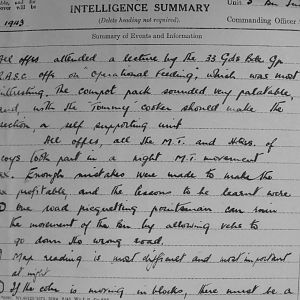 INTELLIGENCE SUMMARY
(Delete heading not required).
Commanding Officer
1943
Summary of Events and Information
All offrs attended a lecture by the 33 Gds Bde Gp
R.A.S.C. offr on Operational feeding, which was most
interesting. The compot pack sounded very palatable,
and, with the "Tommy" cooker should make the
section, a self supporting unit
All offrs, all the M.T. and Hdrs. of
coys took part in a night M.T. movement
ex. Enough mistakes were made to make the
ex profitable, and the lessons to be learnt were
One road picquetting pointsman can ruin
the movement of the Bn by allowing vehs to
go down the wrong road.
Map reading is most difficult and most important
at night
If the coln is moving in blocks, there must be a